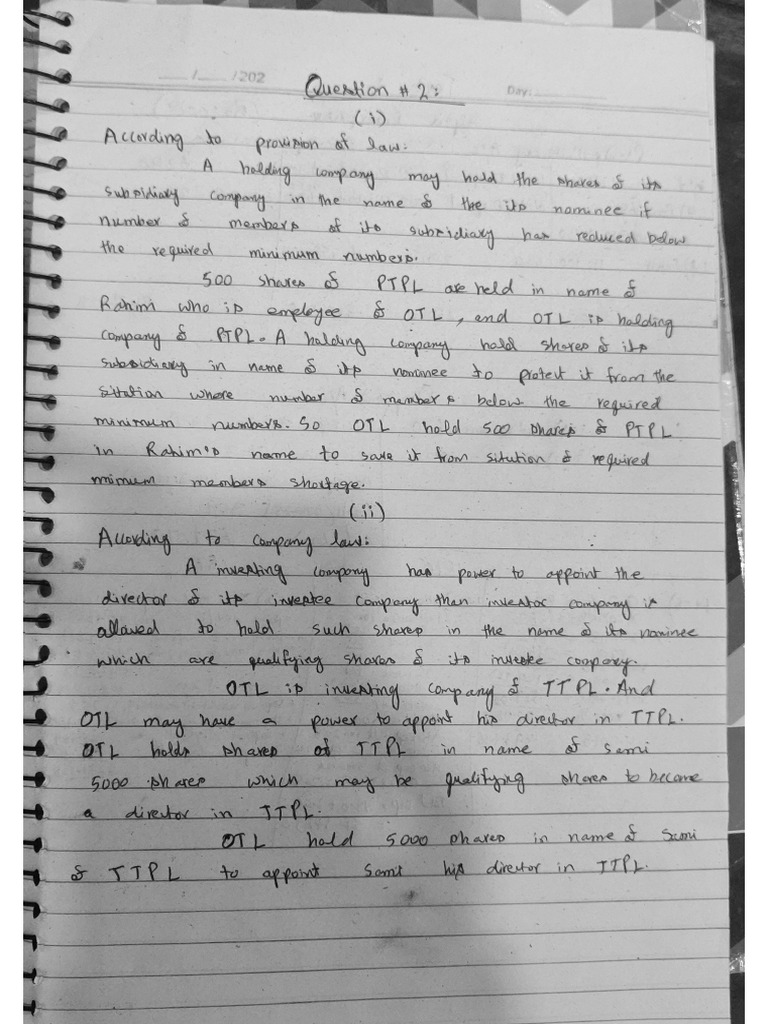 __/__/202
Day:
Question # 2:
(i)
According to provision of law:
A holding company may hold the shares of its
subsidiary company in the name of the its nominee if
number of members of its subsidiary has reduced below
the required minimum numbers.
500 shares of PTPL are held in name of
Rahim who is employee of OTL, and OTL is holding
company of PTPL. A holding company hold shares of its
subsidiary in name of its nominee to protect it from the
sitation where number of members below the required
minimum numbers. So OTL hold 500 shares of PTPL
in Rahim's name to save it from sitution of required
mimum members shortage.
(ii)
According to company law:
A investing company has power to appoint the
director of its investee company than investor company is
allowed to hold such shares in the name of its nominee
which are qualifying shares of its investee coopany.
OTL is investing company of TTPL. And
OTL may have a power to appoint his director in TTPL.
OTL holds shares of TTPL in name of Sami
5000 shares which may be qualifying shares to become
a director in TTPL.
OTL hold 5000 shares in name of Sami
of TTPL to appoint Sami his director in TTPL.